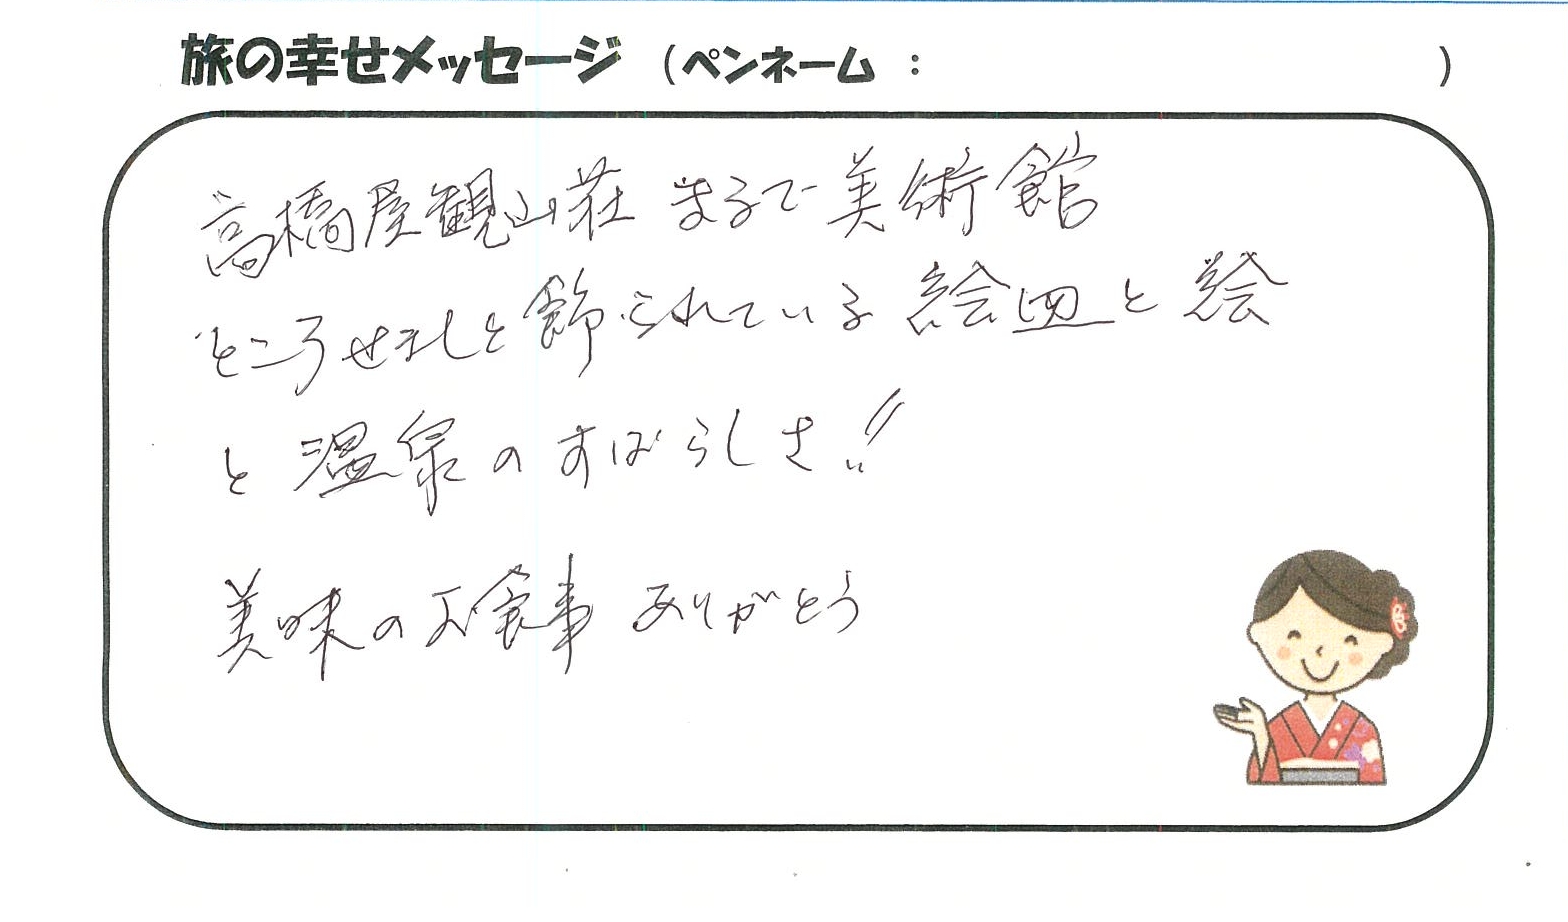 旅の幸せメッセージ（ペンネーム：　　　）
高橋屋観山荘 まるで美術館
ところせましと飾られている絵皿と絵
と温泉のすばらしさ!!
美味のお食事 ありがとう